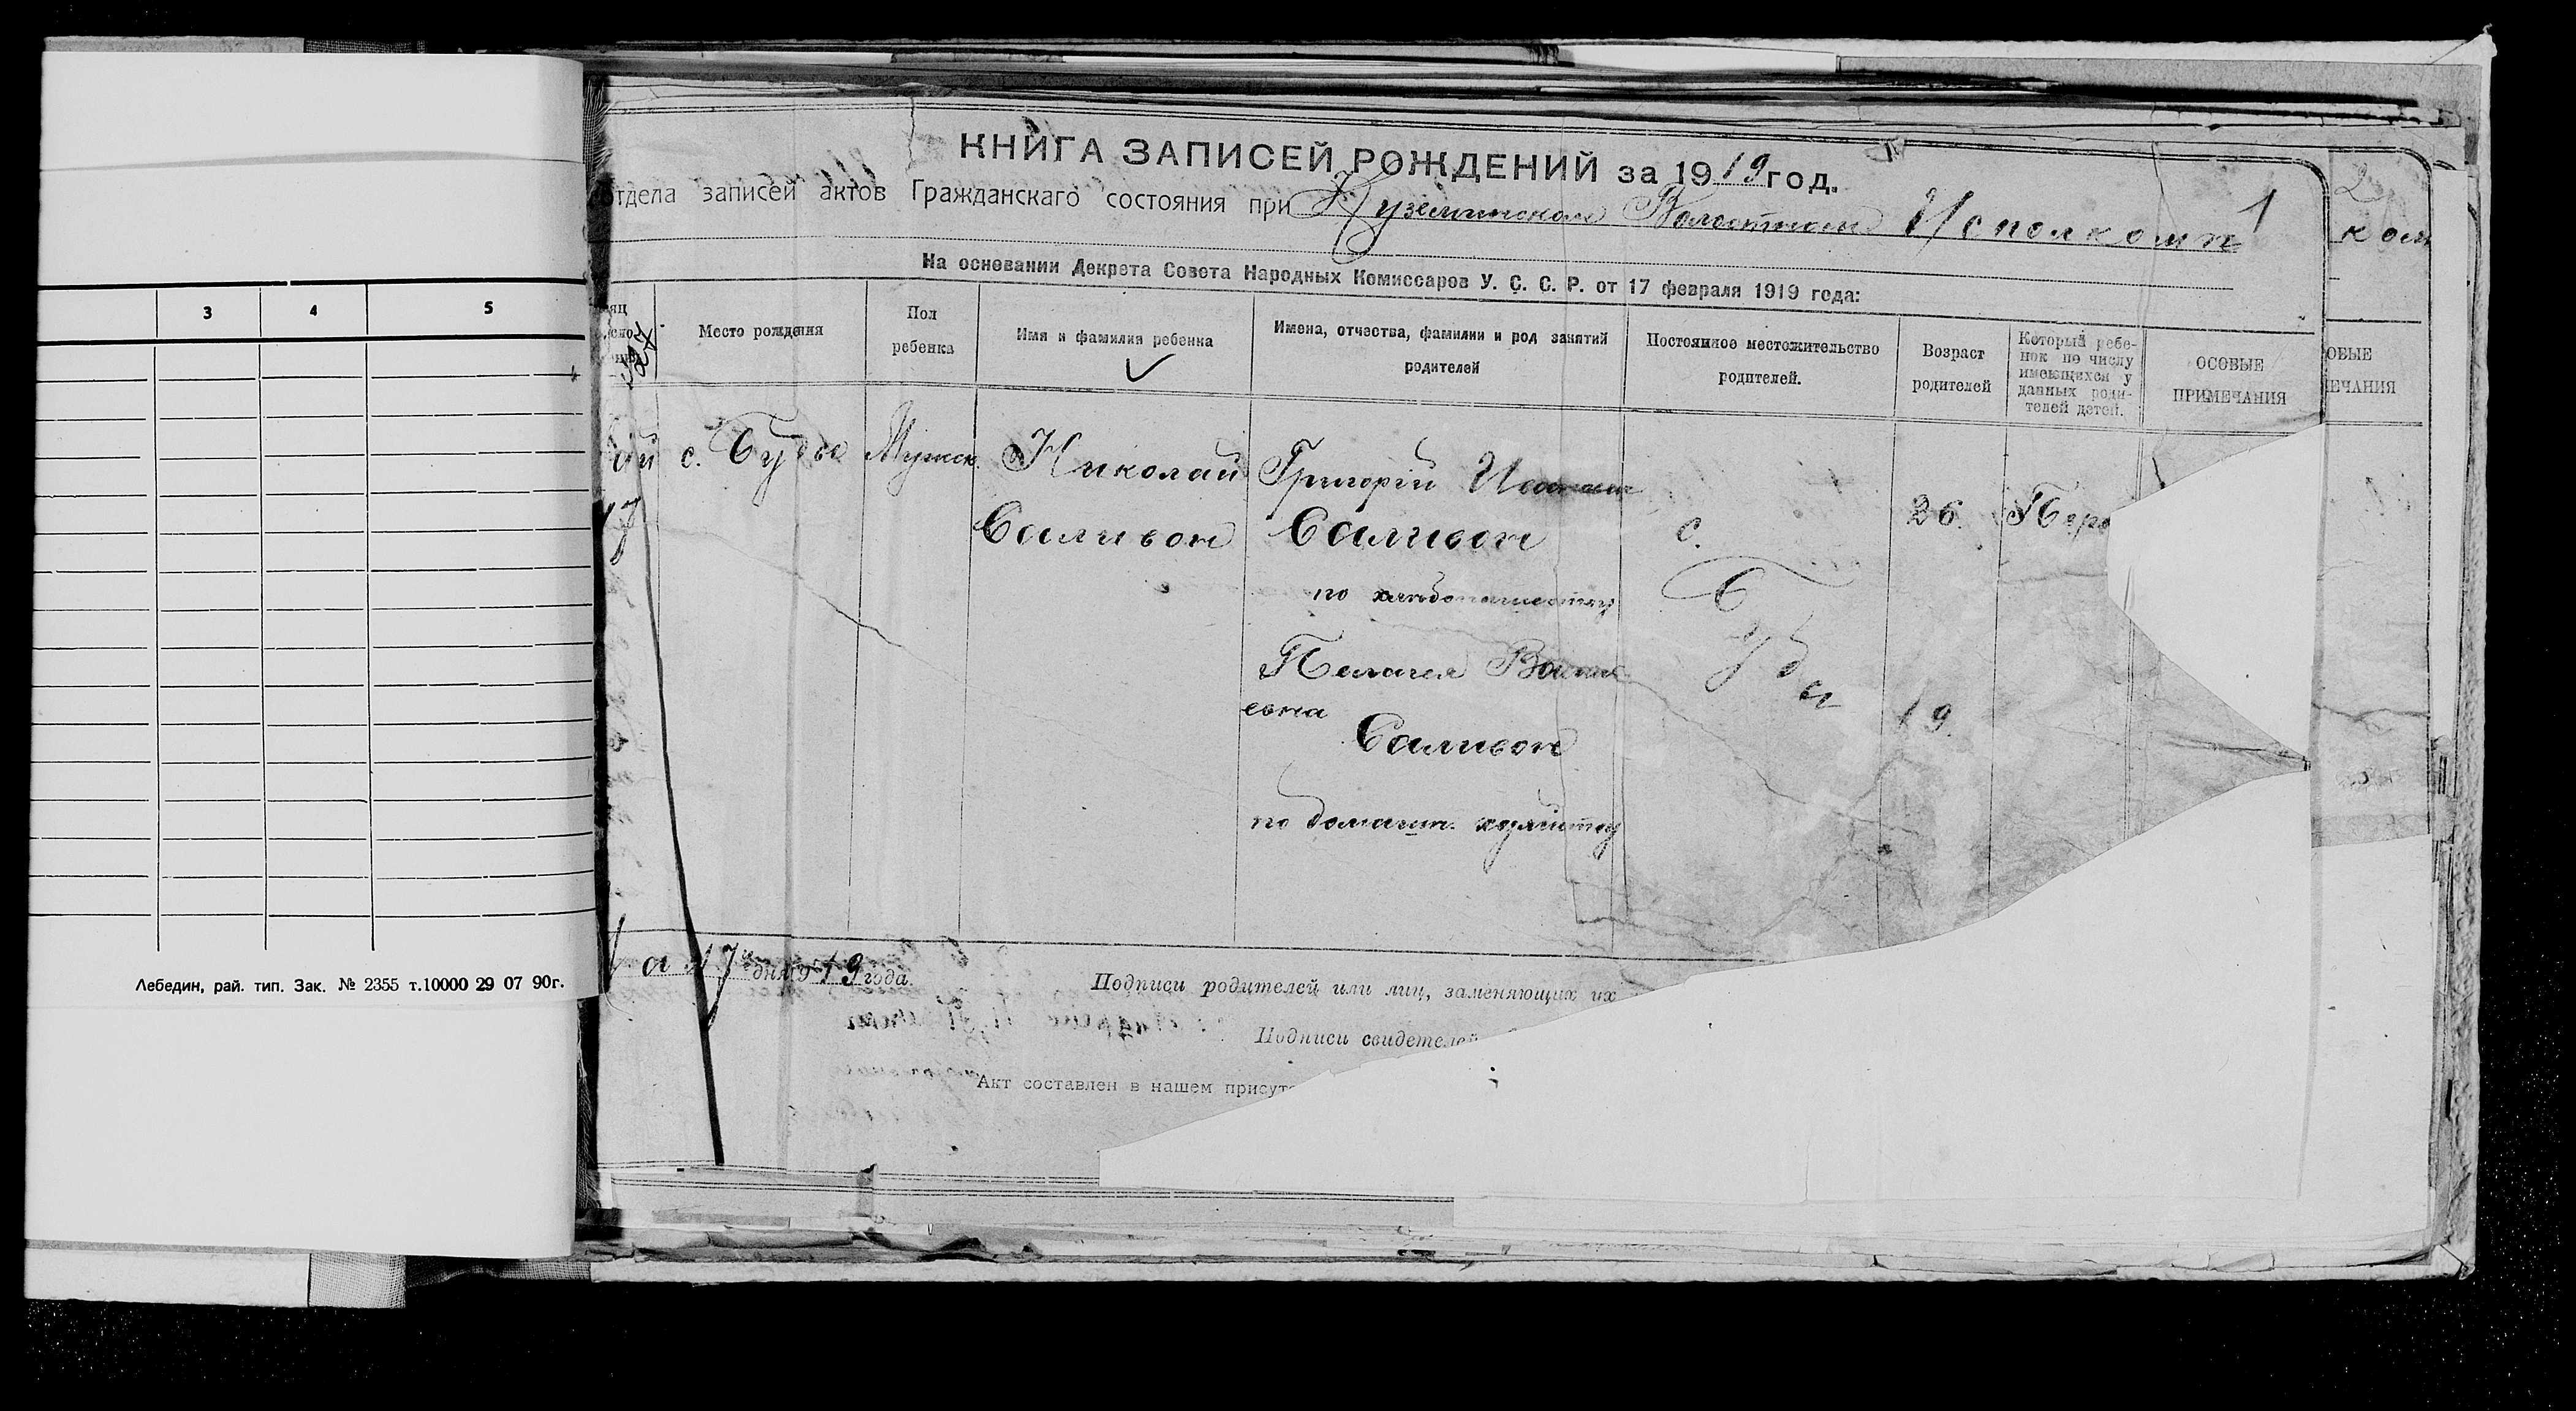 3 4 5
Лебедин, рай. тип. Зак. № 2355 т.10000 29 07 90г.
КНИГА ЗАПИСЕЙ РОЖДЕНИЙ за 1919 год.
отдела записей актов Гражданскаго состояния при Куземинском Волостном Исполкоми
1
2
ком
На основании Декрета Совета Народных Комиссаров У. С. С. Р. от 17 февраля 1919 года:
Место рождения
Пол
ребенка
Имя и фамилия ребенка
Имена, отчества, фамилии и род занятий
родителей
Постоянное местожительство
родителей.
Возраст
родителей
Который ребе-
нок по числу
имеющихся у
данных роди-
телей детей.
ОСОБЫЕ
ПРИМЕЧАНИЯ
ОБЫЕ
ЕЧАНИЯ
с. Буды Мужск. Николай Григорій
17 Саливон Саливон с. 26. Пер
по хлебопашеству Буды
Пелагея
евна 19.
Саливон
по домашн. хозяйству
17 дня 1919 года.
Подписи родителей или лиц, заменяющих их
Подписи свидетелей
Акт составлен в нашем присут